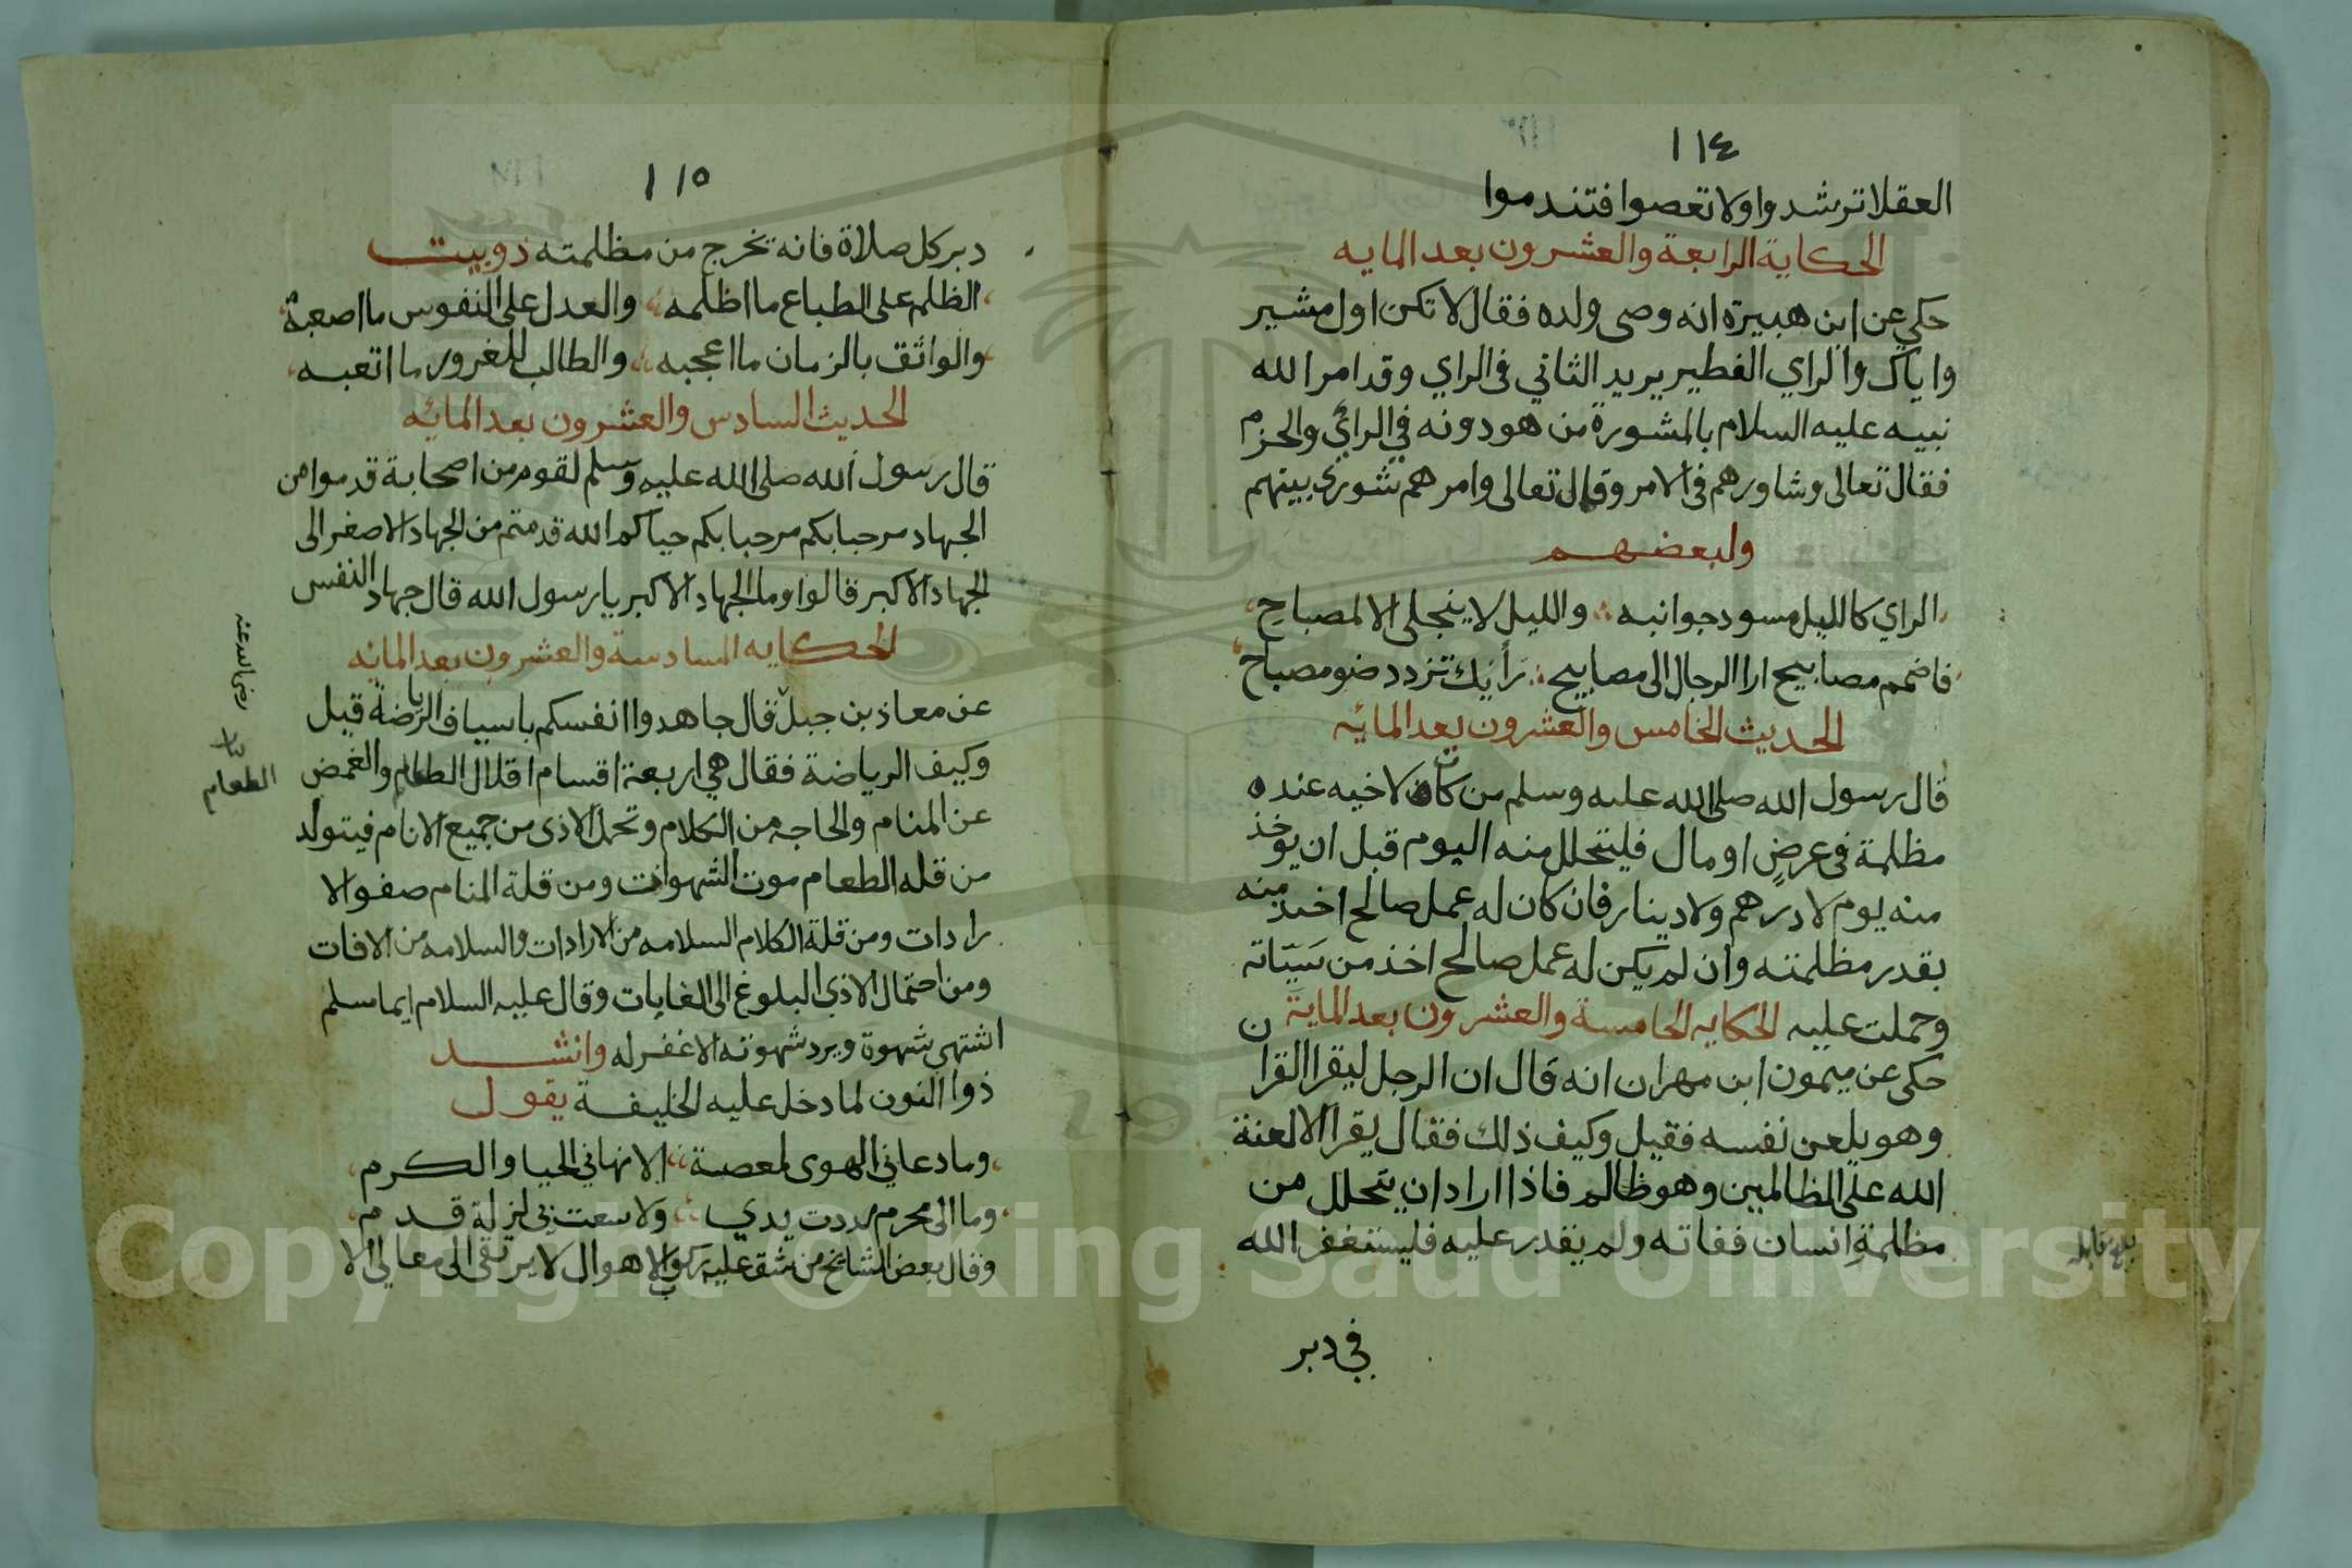 ١١٤
العقلا ترشدوا ولا تعصوا فتندموا
الحكاية الرابعة والعشرون بعد المايه
حكي عن ابن هبيرة انه وصى ولده فقال لا تكن اول مشير
واياك والراي الفطير يريد الثاني في الراي وقد امر الله
نبيه عليه السلام بالمشورة من هو دونه في الراي والحزم
فقال تعالى وشاورهم في الامر وقال تعالى وامرهم شورى بينهم
ولبعضهم
الراي كالليل مسود جوانبه والليل لا ينجلى الا لمصباح
فاضمم مصابيح ارا الرجال الى مصابيح رأيك تزدد ضو مصباح
الحديث الخامس والعشرون بعد المائه
قال رسول الله صلى الله عليه وسلم من كانت لاخيه عنده
مظلمة في عرضٍ او مال فليتحلل منه اليوم قبل ان يوخذ
منه يوم لا درهم ولا دينار فان كان له عمل صالح اخذ منه
بقدر مظلمته وان لم يكن له عمل صالح اخذ من سَيّاته
وحملت عليه الحكايه الخامسة والعشرون بعد الماية
حكى عن ميمون ابن مهران انه قال ان الرجل ليقرا القران
وهو يلعن نفسه فقيل وكيف ذلك فقال يقرا الا لعنة
الله على الظالمين وهو ظالم فاذا اراد ان يتحلل من
مظلمةِ انسان ففاته ولم يقدر عليه فليستغفر الله
في دبر
١١٥
دبر كل صلاة فانه تخرج من مظلمته ذوبيت
الظلم على الطباع ما اظلمه والعدل على النفوس ما اصعبهُ
والواثق بالزمان ما اعجبه والطالب للغرور ما اتعبه
الحديث السادس والعشرون بعد المائه
قال رسول الله صلى الله عليه وسلم لقوم من اصحابة قدموا من
الجهاد مرحبا بكم مرحبا بكم حياكم الله قدمتم من الجهاد الاصغر الى
الجهاد الاكبر قالوا وما الجهاد الاكبر يا رسول الله قال جهاد النفس
الحكايه السادسة والعشرون بعد المائه
عن معاذ بن جبل قال جاهدوا انفسكم باسياف الرياضة قيل
رضي الله عنه
وكيف الرياضة فقال هي اربعة اقسام اقلال الطعام والغمض
الطعام
عن المنام والحاجه من الكلام وتحمل الاذى من جميع الانام فيتولد
من قله الطعام موت الشهوات ومن قلة المنام صفو الا
رادات ومن قلة الكلام السلامه من الارادات والسلامه من الافات
ومن احتمال الاذي البلوغ الى الغايات وقال عليه السلام ايما مسلم
اشتهى شهوة ويرد شهوته الا غفر له وانشد
ذوا النون لما دخل عليه الخليفة يقول
وما دعاني الهوى لمعصية الا نهاني الحيا والكرم
وما الى محرم مددت يدي ولا سعت بي لزلة قدم
وقال بعض المشايخ من شق عليه ركوب الاهوال لا يرتقى الى معالي الا